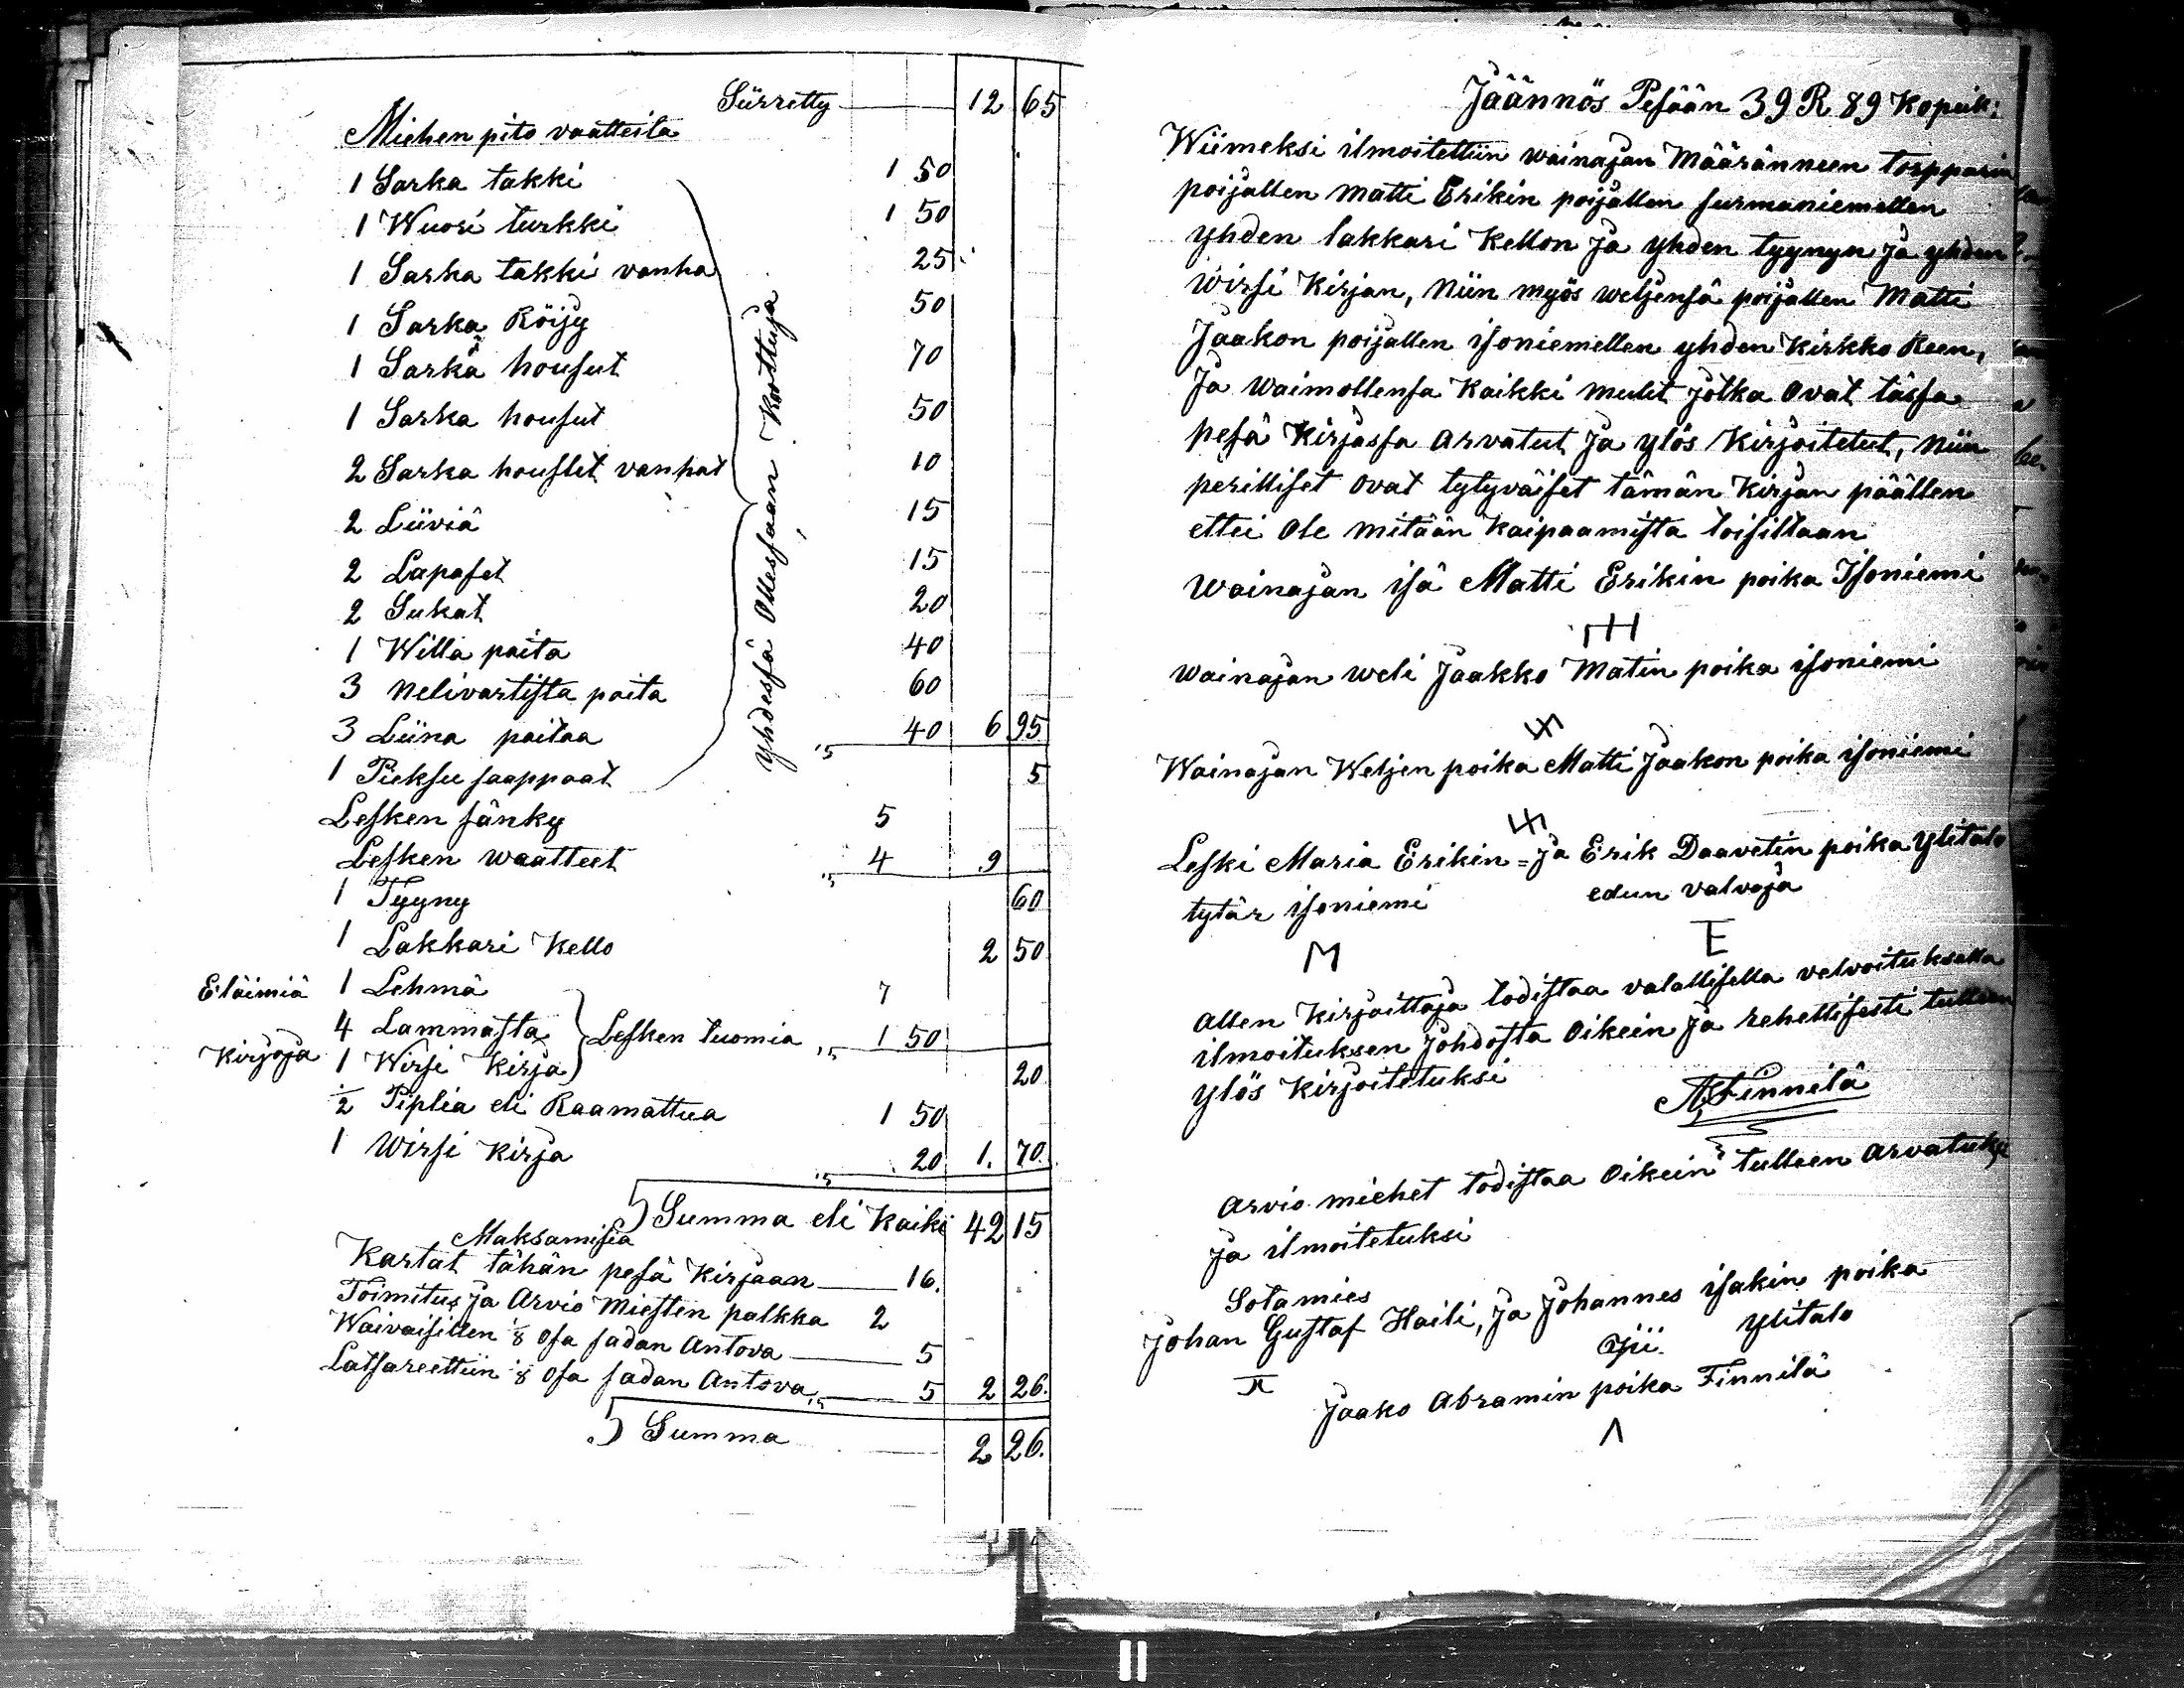 Siirretty 12 65
Miehen pito vaatteita
1 Sarka takki 1 50
1 Wuori turkki 1 50
1 Sarka takki vanha 25
1 Sarka Röijy 50
1 Sarka housut 70
1 Sarka housut 50
2 Sarka houslut vanhat 10
2 Liiviä 15
2 Lapaset 15
2 Sukat 20
1 Willa paita 40
3 nelivartista paita 60
3 Liina paitaa 40 6 95
1 Pieksu saappaat 5
yhdessä Ollessaan Koottuja
Lesken sänky 5
Lesken waatteet 4 9
1 Tyyny 60
1 Lakkari Kello 2 50
Eläimiä 1 Lehmä 7
4 Lammasta Lesken tuomia 1 50
Kirjoja 1 Wirsi Kirja 20
1/2 Piplia eli Raamattua 1 50
1 Wirsi Kirja 20 1. 70.
Summa eli Kaiki 42 15
Maksamisia
Kartat tähän pesä Kirjaan 16.
Toimitus ja Arvio Miesten palkka 2
Waivaisillen 1/8 Osa sadan Antova 5
Latsareettiin 1/8 Osa sadan Antova 5 2 26.
Summa 2 26.
Jäännös Pesään 39 R 89 Kopeik:
Wiimeksi ilmoitettiin wainajan Määränneen torpparin
poijallen Matti Erikin poijallen surmaniemellen
yhden lakkari Kellon ja yhden tyynyn ja yhden
Wirsi Kirjan, Niin myös weljensä poijallen Matti
Jaakon poijallen isoniemellen yhden Kirkko Reen,
Ja Waimollensa Kaikki Muut jotka Ovat tässa
pesä Kirjassa Arvatut ja ylös Kirjoitetut, Niin
perilliset Ovat tytyväiset tämän Kirjan päällen
ettei Ole Mitään Kaipaamista toisiltaan
Wainajan isä Matti Erikin poika Isoniemi
Wainajan weli Jaakko Matin poika isoniemi
Wainajan Weljen poika Matti Jaakon poika isoniemi
Leski Maria Erikin = ja Erik Daavetin poika Ylitalo
tytär isoniemi edun valvoja
M E
Allen Kirjoittaja todistaa valallisella velvoituksella
ilmoituksen johdosta Oikein ja rehellisesti tulleen
ylös Kirjoitetuksi
A Finnilä
Arvio miehet todistaa Oikein tulleen Arvatuksi
ja ilmoitetuksi
Sotamies
Johan Gustaf Haili, ja Johannes isakin poika
Ylitalo
Jaako Abramin poika Finnilä
II